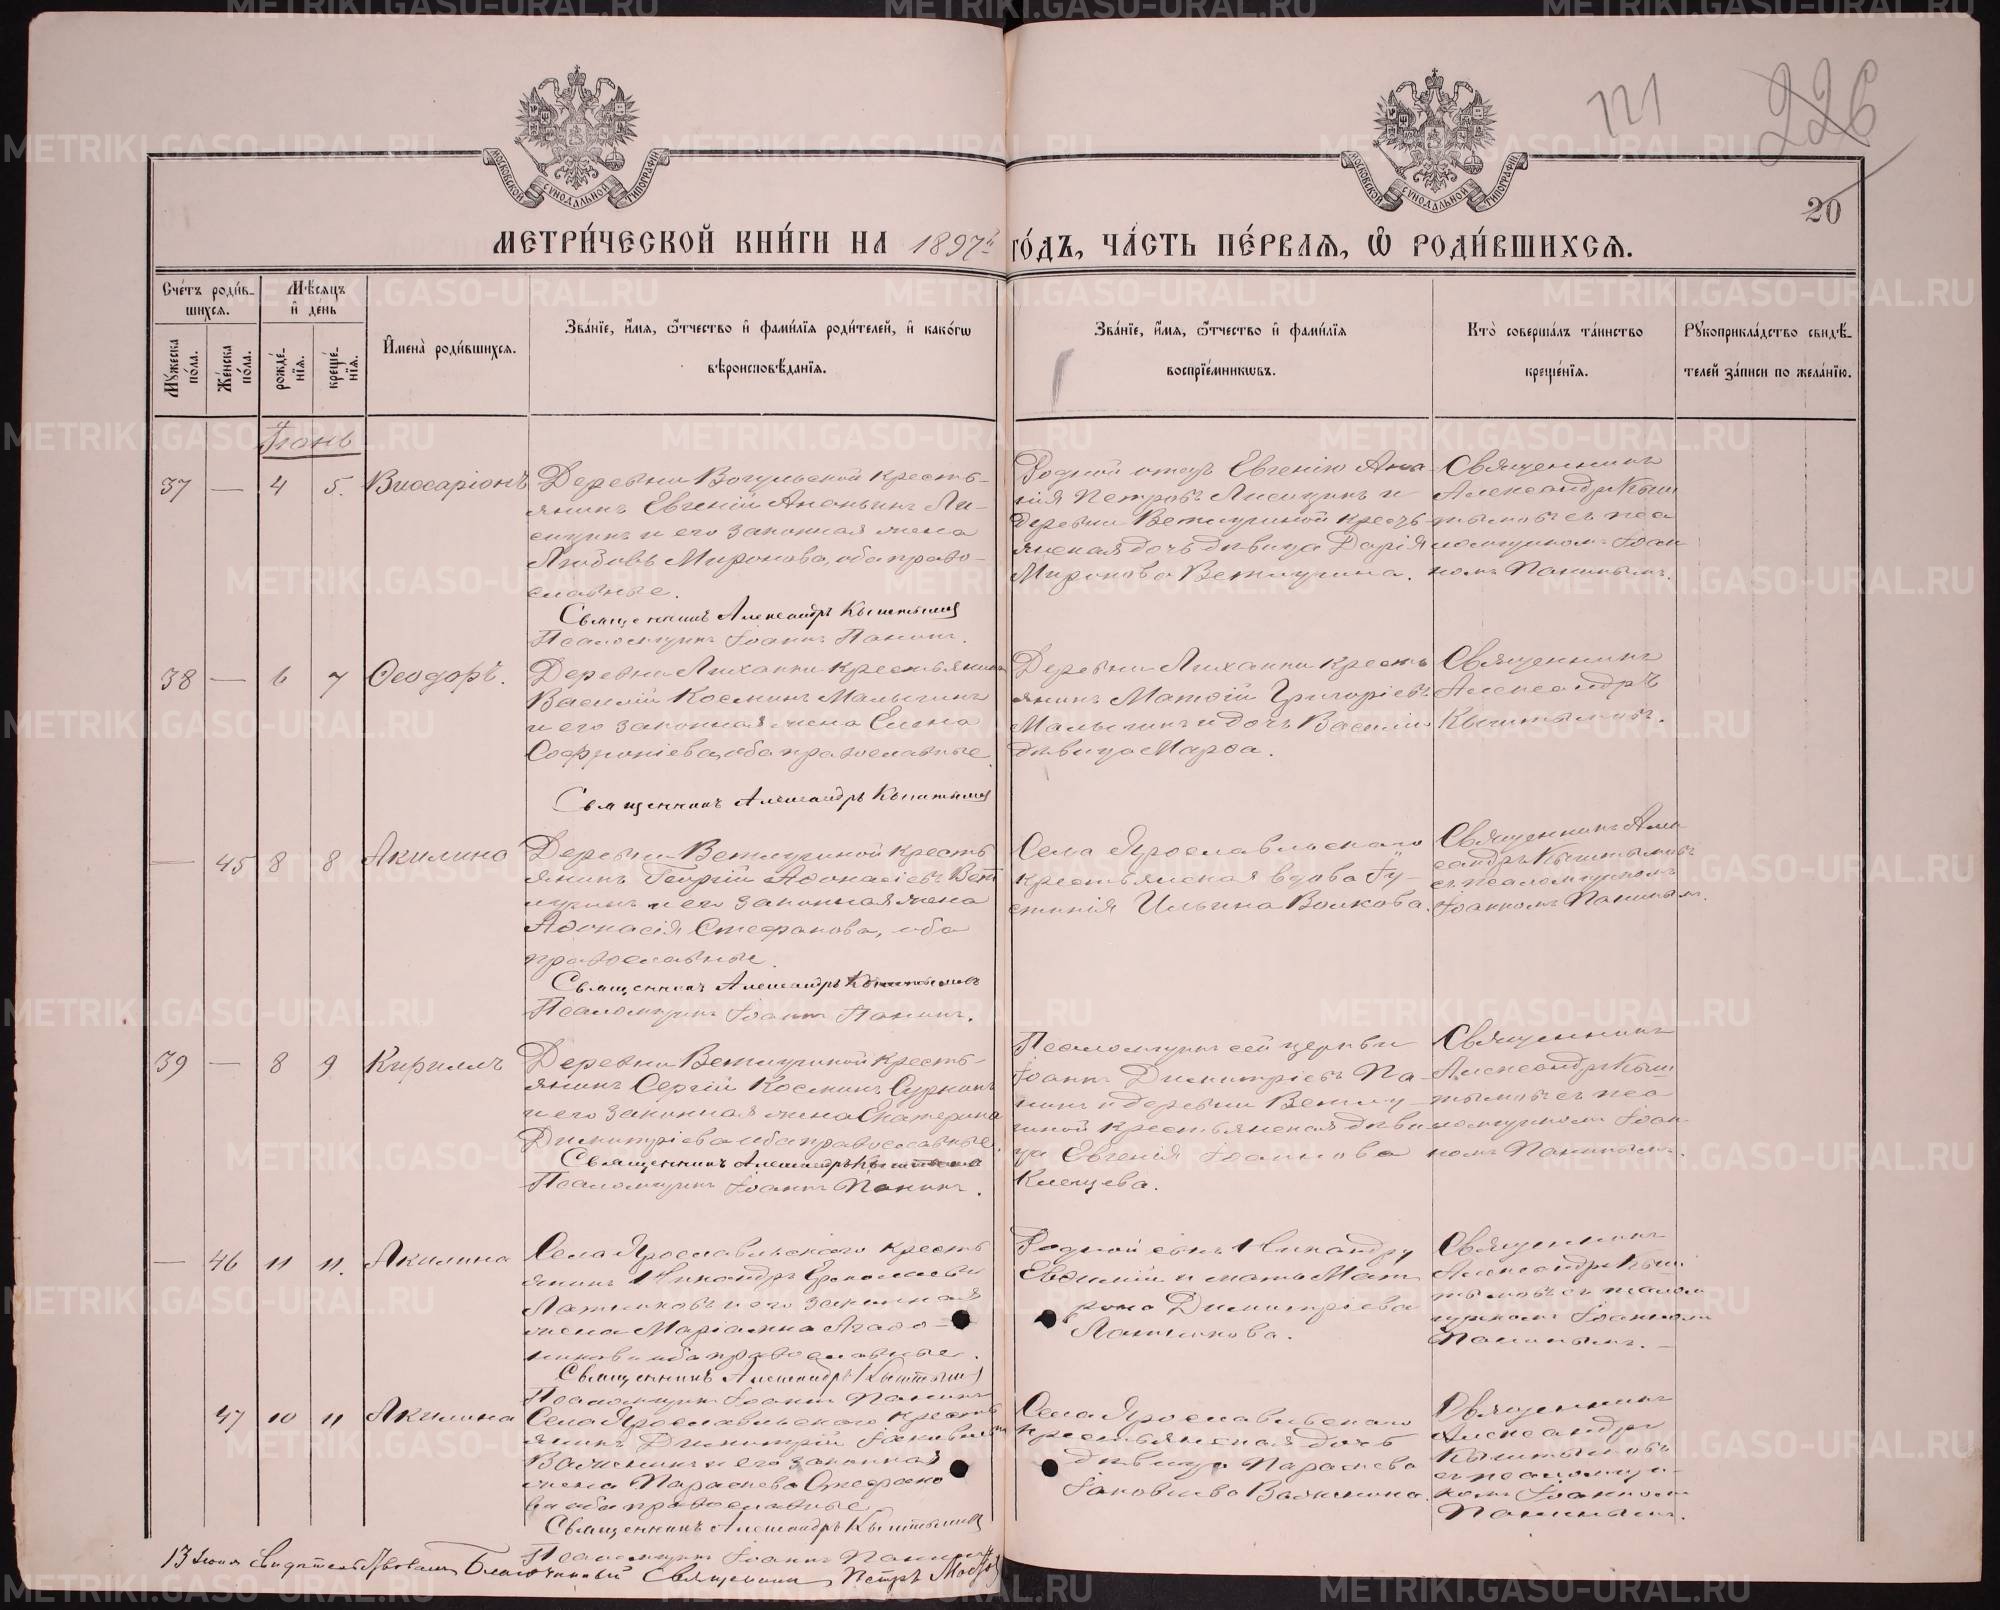 121
226
20
МОСКОВСКОЙ СѴНОДАЛЬНОЙ ТИПОГРАФІИ
МОСКОВСКОЙ СѴНОДАЛЬНОЙ ТИПОГРАФІИ
МЕТРИ́ЧЕСКОЙ КНИ́ГИ НА 1897й ГО́ДЪ, ЧА́СТЬ ПЕ́РВАЯ, Ѡ РОДИ́ВШИХСЯ.
Сче́тъ роди́в-
шихся.
Мꙋ́жеска по́ла.
Же́нска по́ла.
Мѣ́сяцъ
и҆ де́нь
рожде́-
нїѧ.
креще́-
нїѧ.
И҆мена̀ роди́вшихся.
Зва́нїе, и҆́мя, ѻ҆́тчество и҆ фами́лїя роди́телей, и҆ како́гѡ
вѣроисповѣ́данїя.
Зва́нїе, и҆́мя, ѻ҆́тчество и҆ фами́лїя
воспрїе́мникѡвъ.
Кто̀ соверша́лъ та́инство
креще́нїя.
Рꙋкоприкла́дство свидѣ́-
телей за́писи по жела́нїю.
Іюнь
37 — 4 5. Виссаріонъ
Деревни Вогульской кресть-
янинъ Евгеній Ананьинъ Ли-
сицинъ и его законная жена
Любовь Миронова, оба право-
славные.
Священникъ Александръ Кыштымов
Псаломщикъ Іоаннъ Панинъ.
Родной отецъ Евгенію Ана-
нія Петровъ Лисицинъ и
деревни Ветлугиной кресть-
янская дочь девица Дарія
Миронова Ветлугина.
Священникъ
Александръ Кыш-
тымовъ съ пса
ломщикомъ Іоан-
номъ Панинымъ.
38 — 6 7 Ѳеодоръ.
Деревни Лиханки крестьянинъ
Василій Косминъ Малыгинъ
и его законная жена Елена
Софроніева, оба православные.
Священникъ Александръ Кыштымов
Деревни Лиханки кресть
янинъ Матѳій Григоріевъ
Малыгинъ и дочь Василія
девица Марѳа.
Священникъ
Александръ
Кыштымовъ.
— 45 8 8 Акилина
Деревни Ветлугиной кресть
янинъ Георгій Аѳонасіевъ Вет
лугинъ и его законная жена
Аѳонасія Стефанова, оба
православные.
Священникъ Александръ Кыштымовъ
Псаломщикъ Іоаннъ Панинъ.
Села Ярославльскаго
крестьянская вдова Іу-
стинія Ильина Волкова.
Священникъ Алек
сандръ Кыштымовъ
съ псаломщикомъ
Іоанномъ Панинымъ.
39 — 8 9 Кириллъ
Деревни Ветлугиной кресть-
янинъ Сергій Косминъ Суркинъ
и его законная жена Екатерина
Димитріева, оба православные.
Священникъ Александръ Кыштымов
Псаломщикъ Іоаннъ Панинъ.
Псаломщикъ сей церкви
Іоаннъ Димитріевъ Па-
нинъ и деревни Ветлу-
гиной крестьянская деви
ца Евгенія Іоаннова
Клепцева.
Священникъ
Александръ Кыш
тымовъ съ пса
ломщикомъ Іоан-
номъ Панинымъ.
— 46 11 11. Акилина
Села Ярославльскаго кресть
янинъ Никандръ Ермолаевъ
Латниковъ и его законная
жена Маріамна Агаѳо-
никова, оба православные.
Священникъ Александръ Кыштымов
Псаломщикъ Іоаннъ Панинъ
Родной сынъ Никандру
Евѳимій и мать Мат
рона Димитріева
Латникова.
Священникъ
Александръ Кыш
тымовъ съ псалом
щикомъ Іоанномъ
Панинымъ.
47 10 11 Акилина
Села Ярославльскаго кресть
янинъ Димитрій Іаковлевъ
Важенинъ и его законная
жена Параскева Стефано
ва, оба православные.
Священникъ Александръ Кыштымов
Псаломщикъ Іоаннъ Панинъ
Села Ярославльскаго
крестьянская дочь
девица Параскева
Іаковлева Важенина.
Священникъ
Александръ
Кыштымовъ
съ псаломщи-
комъ Іоанномъ
Панинымъ.
13 Іюня свидетельствовалъ Благочинный Священникъ Петръ
METRIKI.GASO-URAL.RU